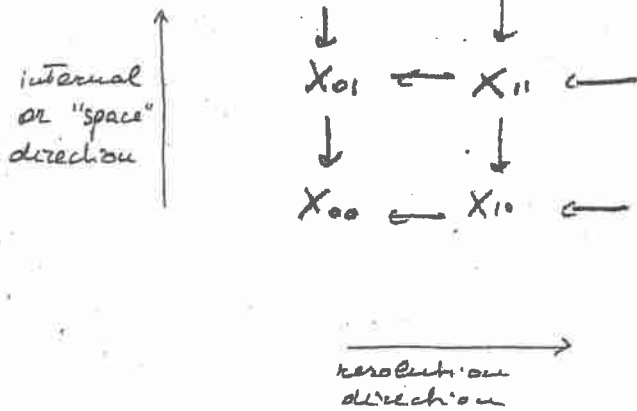 internal
or "space"
direction
X₀₁ ← X₁₁ ←
X₀₀ ← X₁₀ ←
resolution
direction